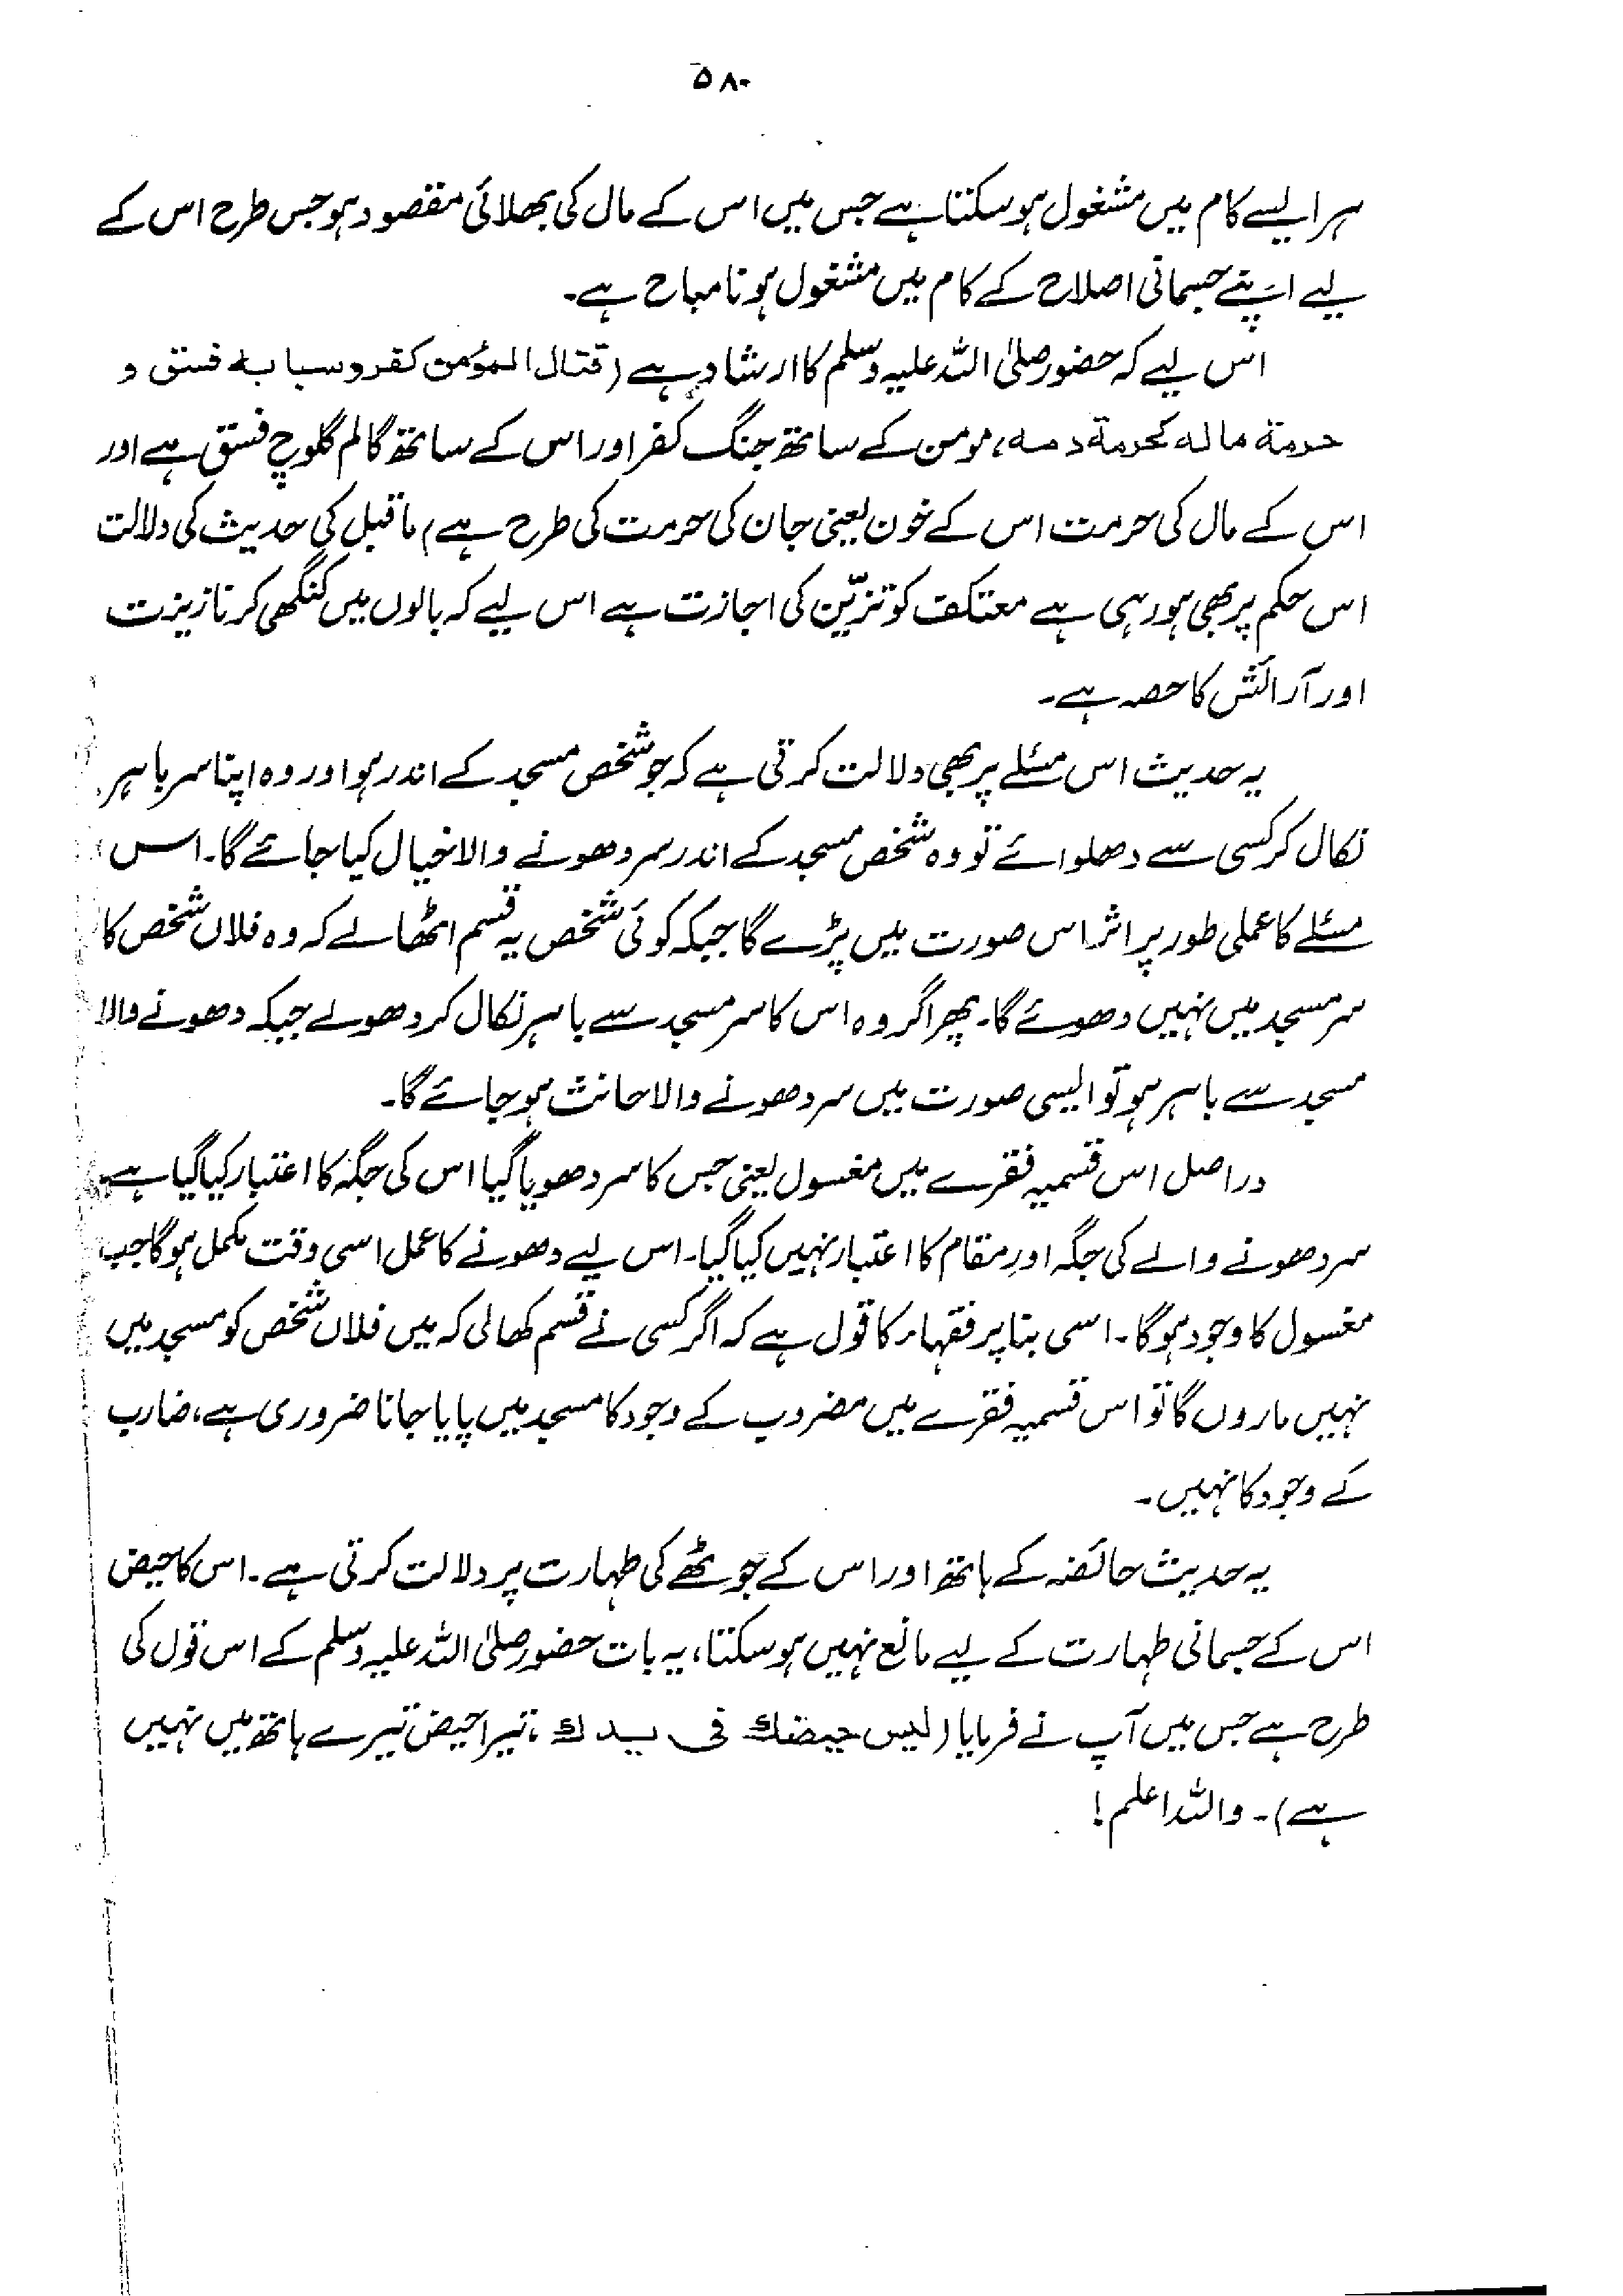 ۵۸۰
ہر ایسے کام میں مشغول ہو سکتا ہے جس میں اس کے مال کی بھلائی مقصود ہو جس طرح اس کے
لیے اپنے جسمانی اصلاح کے کام میں مشغول ہونا مباح ہے۔
اس لیے کہ حضور صلی اللہ علیہ وسلم کا ارشاد ہے (قتال المؤمن کفر و سبابہ فسق و
حرمة ماله کحرمة دمه، مومن کے ساتھ جنگ کفر اور اس کے ساتھ گالم گلوچ فسق ہے اور
اس کے مال کی حرمت اس کے خون یعنی جان کی حرمت کی طرح ہے) ماقبل کی حدیث کی دلالت
اس حکم پر بھی ہو رہی ہے معتکف کو تزیّن کی اجازت ہے اس لیے کہ بالوں میں کنگھی کرنا زینت
اور آرائش کا حصہ ہے۔
یہ حدیث اس مسئلے پر بھی دلالت کرتی ہے کہ جو شخص مسجد کے اندر ہو اور وہ اپنا سر باہر
نکال کر کسی سے دھلوائے تو وہ شخص مسجد کے اندر سر دھونے والا خیال کیا جائے گا۔ اس
مسئلے کا عملی طور پر اثر اس صورت میں پڑے گا جبکہ کوئی شخص یہ قسم اٹھا لے کہ وہ فلاں شخص کا
سر مسجد میں نہیں دھوئے گا۔ پھر اگر وہ اس کا سر مسجد سے باہر نکال کر دھولے جبکہ دھونے والا
مسجد سے باہر ہو تو ایسی صورت میں سر دھونے والا حانث ہو جائے گا۔
دراصل اس قسمیہ فقرے میں مغسول یعنی جس کا سر دھویا گیا اس کی جگہ کا اعتبار کیا گیا ہے
سر دھونے والے کی جگہ اور مقام کا اعتبار نہیں کیا گیا۔ اس لیے دھونے کا عمل اسی وقت مکمل ہو گا جب
مغسول کا وجود ہو گا۔ اسی بنا پر فقہاء کا قول ہے کہ اگر کسی نے قسم کھالی کہ میں فلاں شخص کو مسجد میں
نہیں ماروں گا تو اس قسمیہ فقرے میں مضروب کے وجود کا مسجد میں پایا جانا ضروری ہے، ضارب
کے وجود کا نہیں۔
یہ حدیث حائضہ کے ہاتھ اور اس کے جوٹھے کی طہارت پر دلالت کرتی ہے۔ اس کا حیض
اس کے جسمانی طہارت کے لیے مانع نہیں ہو سکتا، یہ بات حضور صلی اللہ علیہ وسلم کے اس قول کی
طرح ہے جس میں آپ نے فرمایا (لیس حیضك فی یدك، تیرا حیض تیرے ہاتھ میں نہیں
ہے)۔ واللہ اعلم!